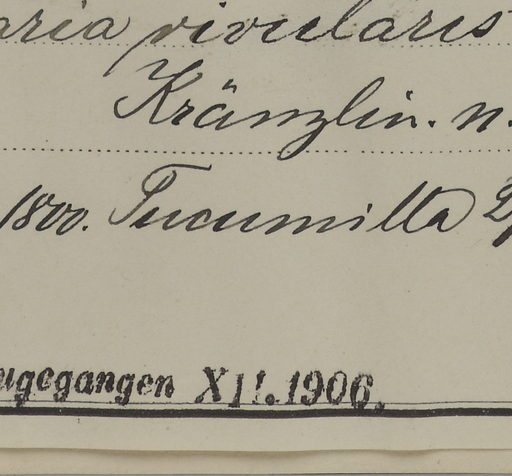 aria rivularis
Kränzlin. n.
1800. Tucumilla
ugegangen XII.1906.